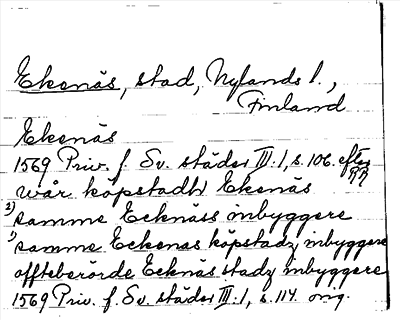 Ekenäs, stad, Nylands l.,
Finland
Ekenäs
1569 Priv. f. Sv. städer III:1, s. 106. efter
wår köpstadh Ekenäs
2) samme Ecknäss inbyggere
1) samme Eckenas köpstadz inbyggere
offteberörde Ecknäs stadz inbyggere
1569 Priv. f. Sv. städer III:1, s. 114. orig.